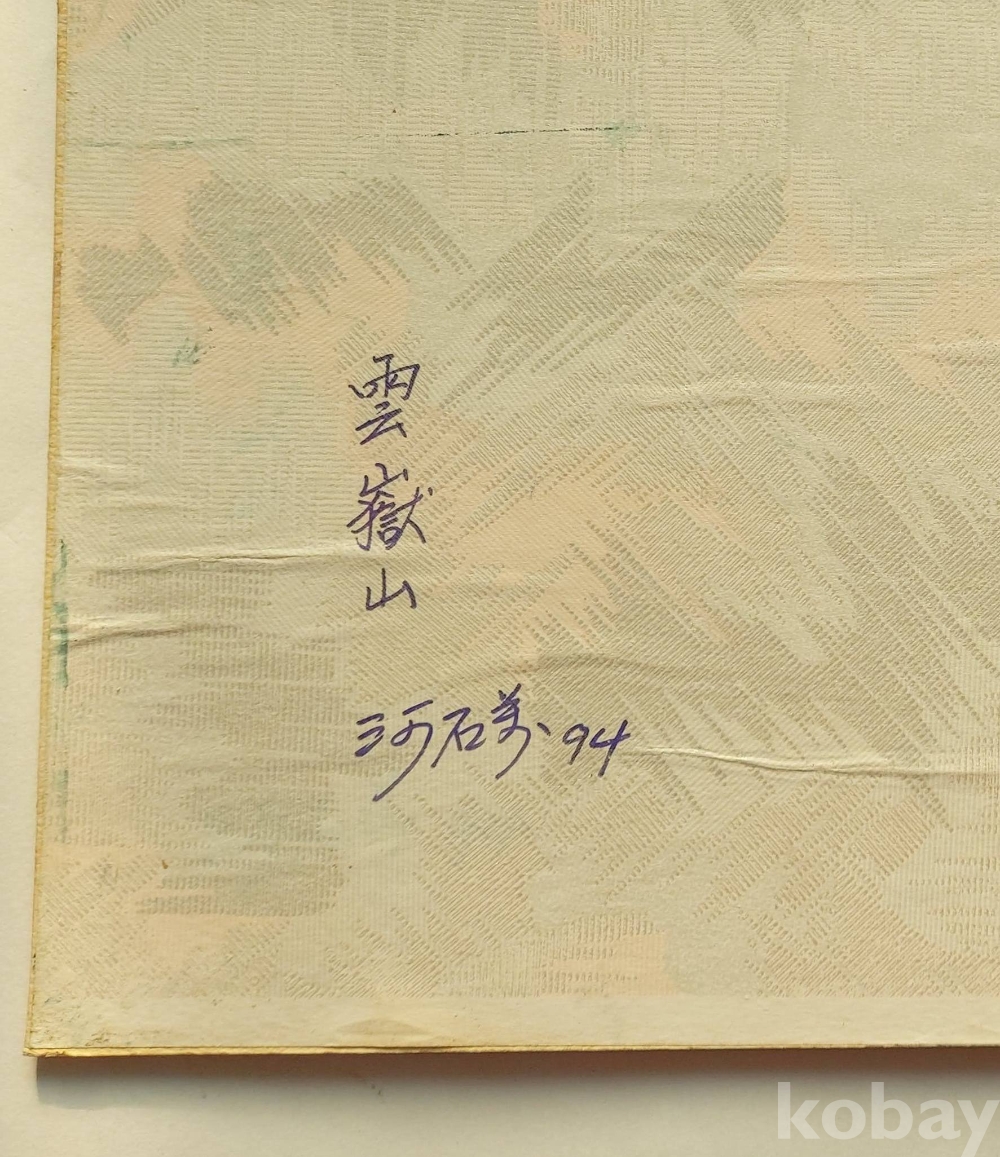 雲嶽山
河石芳、94
kobay